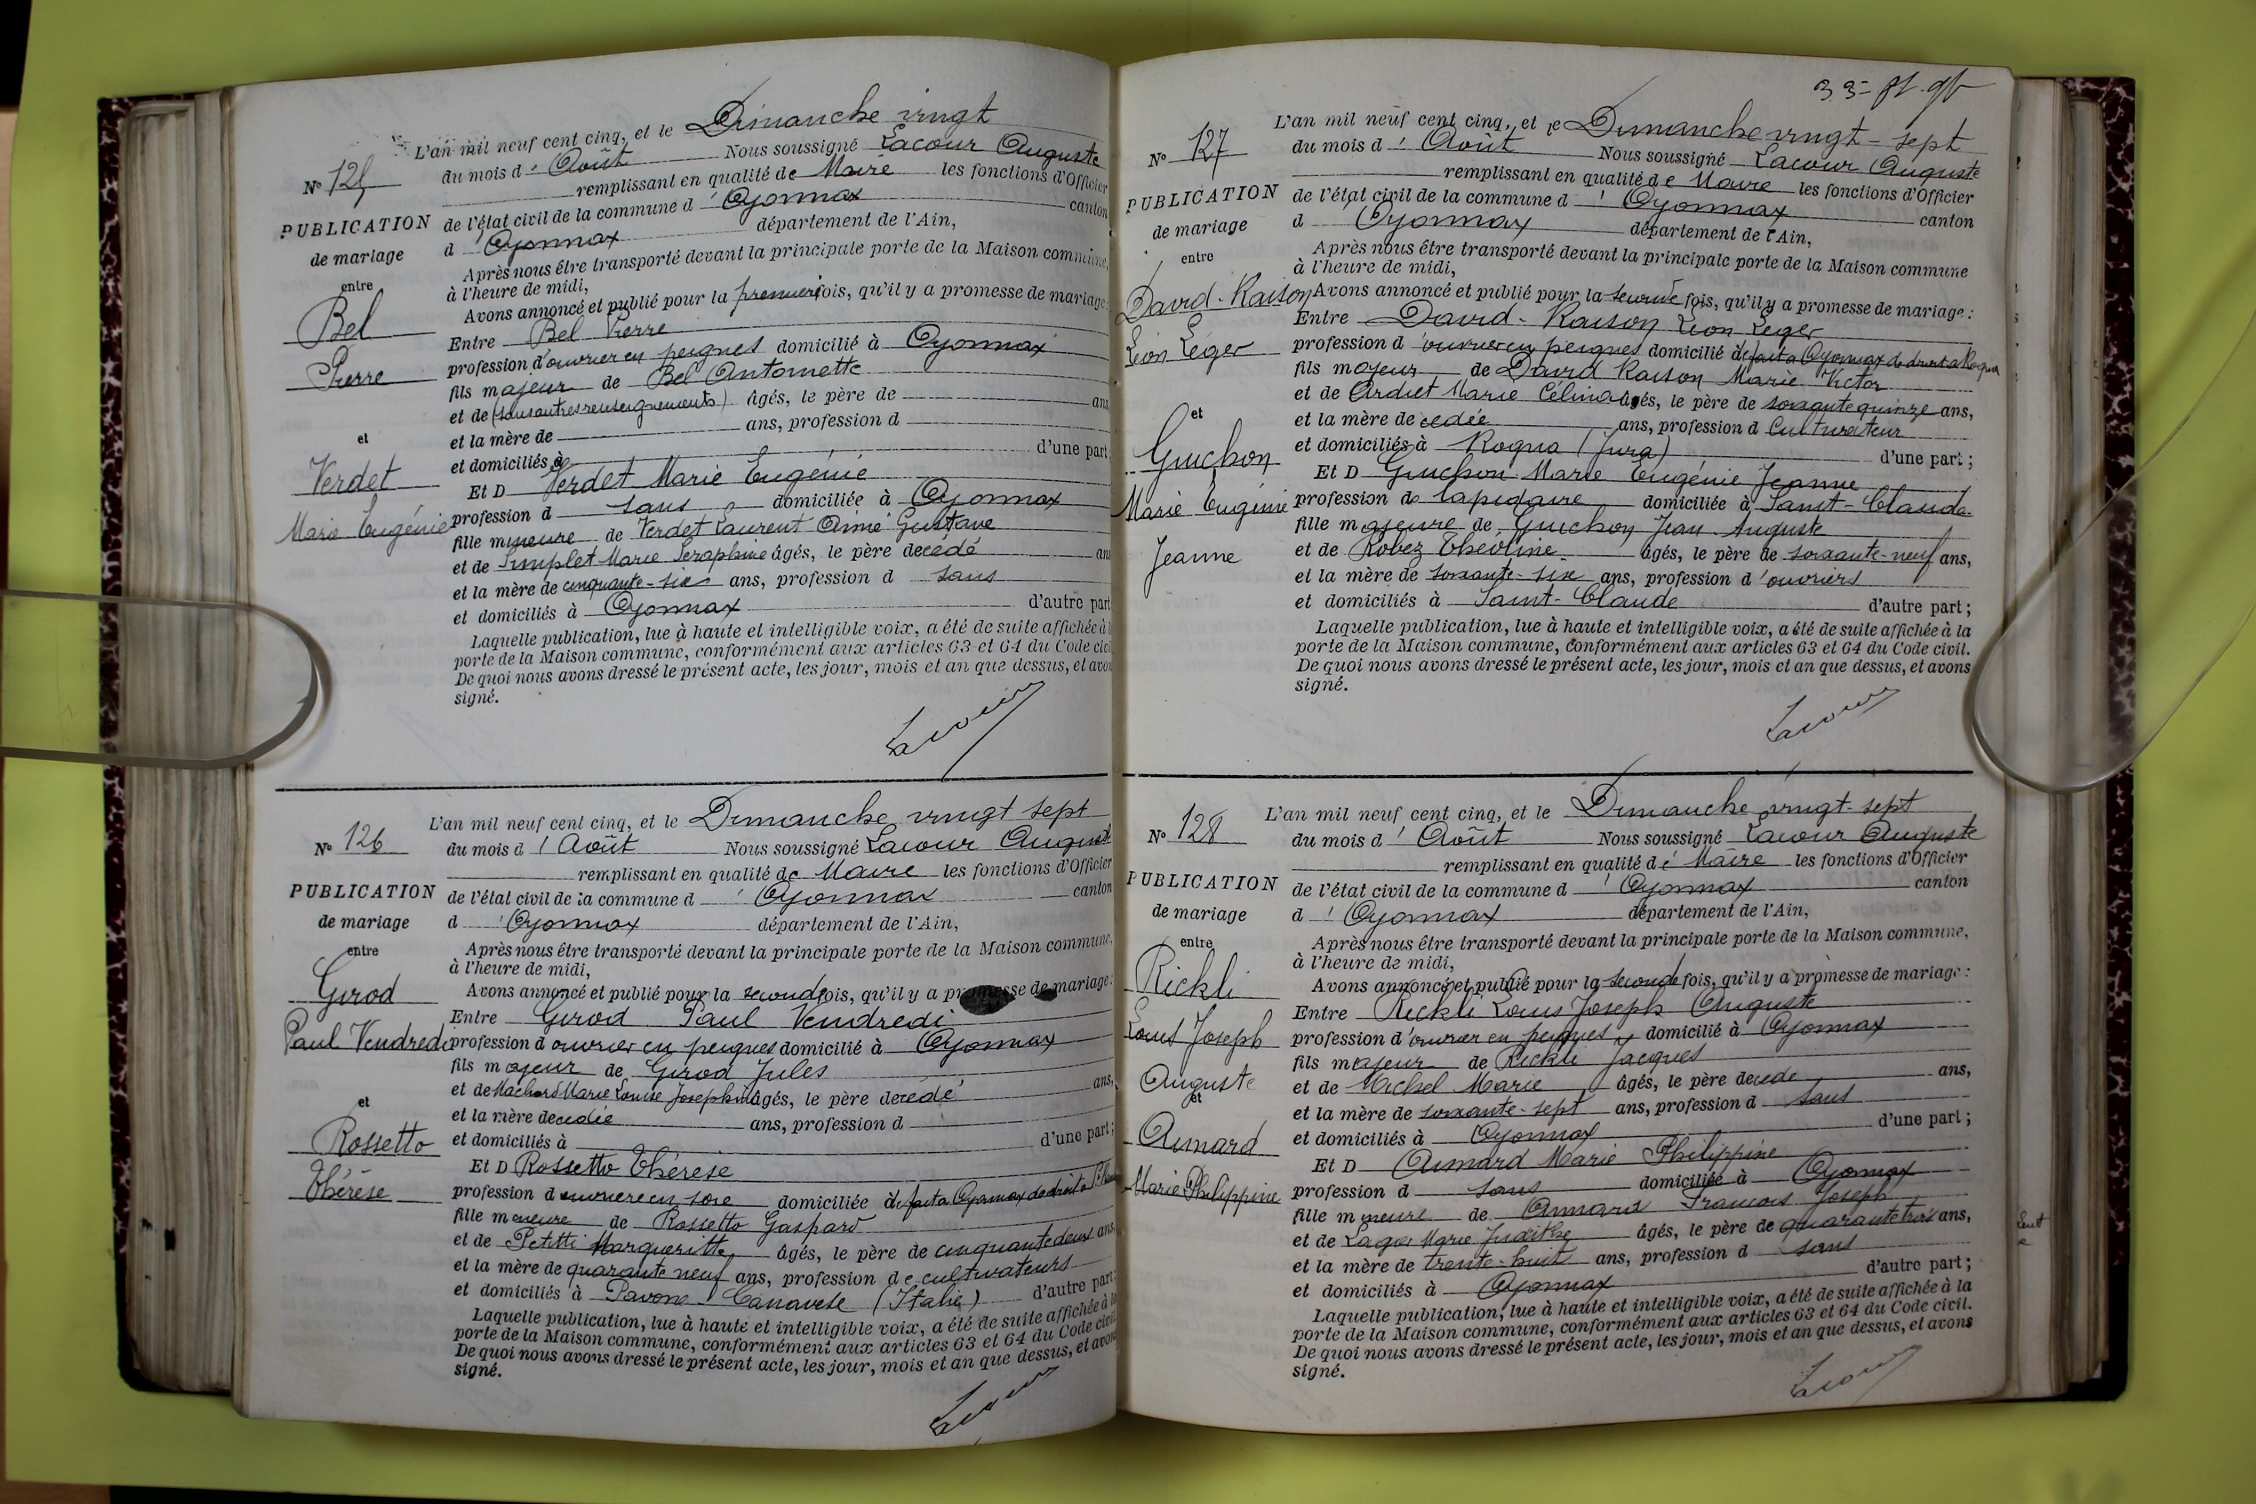 L'an mil neuf cent cinq, et le Dimanche vingt
N° 125 du mois d' Août Nous soussigné Lacour Auguste
remplissant en qualité de Maire les fonctions d'Officier
PUBLICATION de l'état civil de la commune d' Oyonnax canton
de mariage d' Oyonnax département de l'Ain,
Après nous être transporté devant la principale porte de la Maison commune,
entre à l'heure de midi,
Avons annoncé et publié pour la première fois, qu'il y a promesse de mariage:
Bel Entre Bel Pierre
profession d'ouvrier en peignes domicilié à Oyonnax
Pierre fils majeur de Bel Antoinette
et de (sans autres renseignements) âgés, le père de ans
et et la mère de ans, profession d
et domiciliés à d'une part
Verdet Et D Verdet Marie Eugénie
Marie Eugénie profession d sans domiciliée à Oyonnax
fille mineure de Verdet Laurent Aimé Gustave
et de Simplet Marie Séraphine âgés, le père decédé an
et la mère de cinquante-six ans, profession d sans
et domiciliés à Oyonnax d'autre part
Laquelle publication, lue à haute et intelligible voix, a été de suite affichée à l
porte de la Maison commune, conformément aux articles 63 et 64 du Code civil
De quoi nous avons dressé le présent acte, les jour, mois et an que dessus, et avon
signé.
Lacour
L'an mil neuf cent cinq, et le Dimanche vingt sept
N° 126 du mois d' Août Nous soussigné Lacour Auguste
remplissant en qualité de Maire les fonctions d'Officier
PUBLICATION de l'état civil de la commune d' Oyonnax canton
de mariage d' Oyonnax département de l'Ain,
entre Après nous être transporté devant la principale porte de la Maison commune,
à l'heure de midi,
Avons annoncé et publié pour la seconde fois, qu'il y a promesse de mariage:
Girod Entre Girod Paul Vendredi
Paul Vendredi profession d'ouvrier en peignes domicilié à Oyonnax
fils majeur de Girod Jules
et de Machard Marie Louise Josephine âgés, le père decédé ans,
et et la mère decédée ans, profession d
Rossetto et domiciliés à d'une part;
Et D Rossetto Thérèse
Thérèse profession d'ouvrière en soie domiciliée à de fait à Oyonnax de droit à
fille mineure de Rossetto Gaspard
et de Petitti Margueritte âgés, le père de cinquante deux ans
et la mère de quarante neuf ans, profession de cultivateurs
et domiciliés à Pavone Canavese (Italie) d'autre part
Laquelle publication, lue à haute et intelligible voix, a été de suite affichée à la
porte de la Maison commune, conformément aux articles 63 et 64 du Code civil
De quoi nous avons dressé le présent acte, les jour, mois et an que dessus, et avons
signé.
Lacour
L'an mil neuf cent cinq, et le Dimanche vingt-sept
N° 127 du mois d' Août Nous soussigné Lacour Auguste
remplissant en qualité de Maire les fonctions d'Officier
PUBLICATION de l'état civil de la commune d' Oyonnax canton
de mariage d' Oyonnax département de l'Ain,
Après nous être transporté devant la principale porte de la Maison commune
entre à l'heure de midi,
David-Raison Avons annoncé et publié pour la seconde fois, qu'il y a promesse de mariage:
Entre David-Raison Léon Léger
Léon Léger profession d'ouvrier en peignes domicilié à de fait à Oyonnax de droit à Rogna
fils majeur de David Raison Marie Victor
et de Ardiet Marie Célina âgés, le père de soixante quinze ans,
et et la mère decedée ans, profession d Cultivateur
Guichon et domiciliés à Rogna (Jura) d'une part;
Et D Guichon Marie Eugénie Jeanne
Marie Eugénie profession de lapidaire domiciliée à Saint-Claude
fille majeure de Guichon Jean Auguste
Jeanne et de Robez Théoline âgés, le père de soixante-neuf ans,
et la mère de soixante-six ans, profession d'ouvriers
et domiciliés à Saint-Claude d'autre part;
Laquelle publication, lue à haute et intelligible voix, a été de suite affichée à la
porte de la Maison commune, conformément aux articles 63 et 64 du Code civil.
De quoi nous avons dressé le présent acte, les jour, mois et an que dessus, et avons
signé.
Lacour
L'an mil neuf cent cinq, et le Dimanche vingt-sept
N° 128 du mois d' Août Nous soussigné Lacour Auguste
remplissant en qualité de Maire les fonctions d'Officier
PUBLICATION de l'état civil de la commune d' Oyonnax canton
de mariage d' Oyonnax département de l'Ain,
entre Après nous être transporté devant la principale porte de la Maison commune,
à l'heure de midi,
Rickli Avons annoncé et publié pour la seconde fois, qu'il y a promesse de mariage:
Entre Rickli Louis Joseph Auguste
Louis Joseph profession d'ouvrier en peignes domicilié à Oyonnax
fils majeur de Rickli Jacques
Auguste et de Michel Marie âgés, le père decédé ans,
et et la mère de soixante-sept ans, profession d sans
Aimard et domiciliés à Oyonnax d'une part;
Et D Aimard Marie Philippine
Marie Philippine profession d sans domiciliée à Oyonnax
fille mineure de Aimard Francois Joseph
et de Lager Marie Judithe âgés, le père de quarante trois ans,
et la mère de trente-huit ans, profession d sans
et domiciliés à Oyonnax d'autre part;
Laquelle publication, lue à haute et intelligible voix, a été de suite affichée à la
porte de la Maison commune, conformément aux articles 63 et 64 du Code civil.
De quoi nous avons dressé le présent acte, les jour, mois et an que dessus, et avons
signé.
Lacour